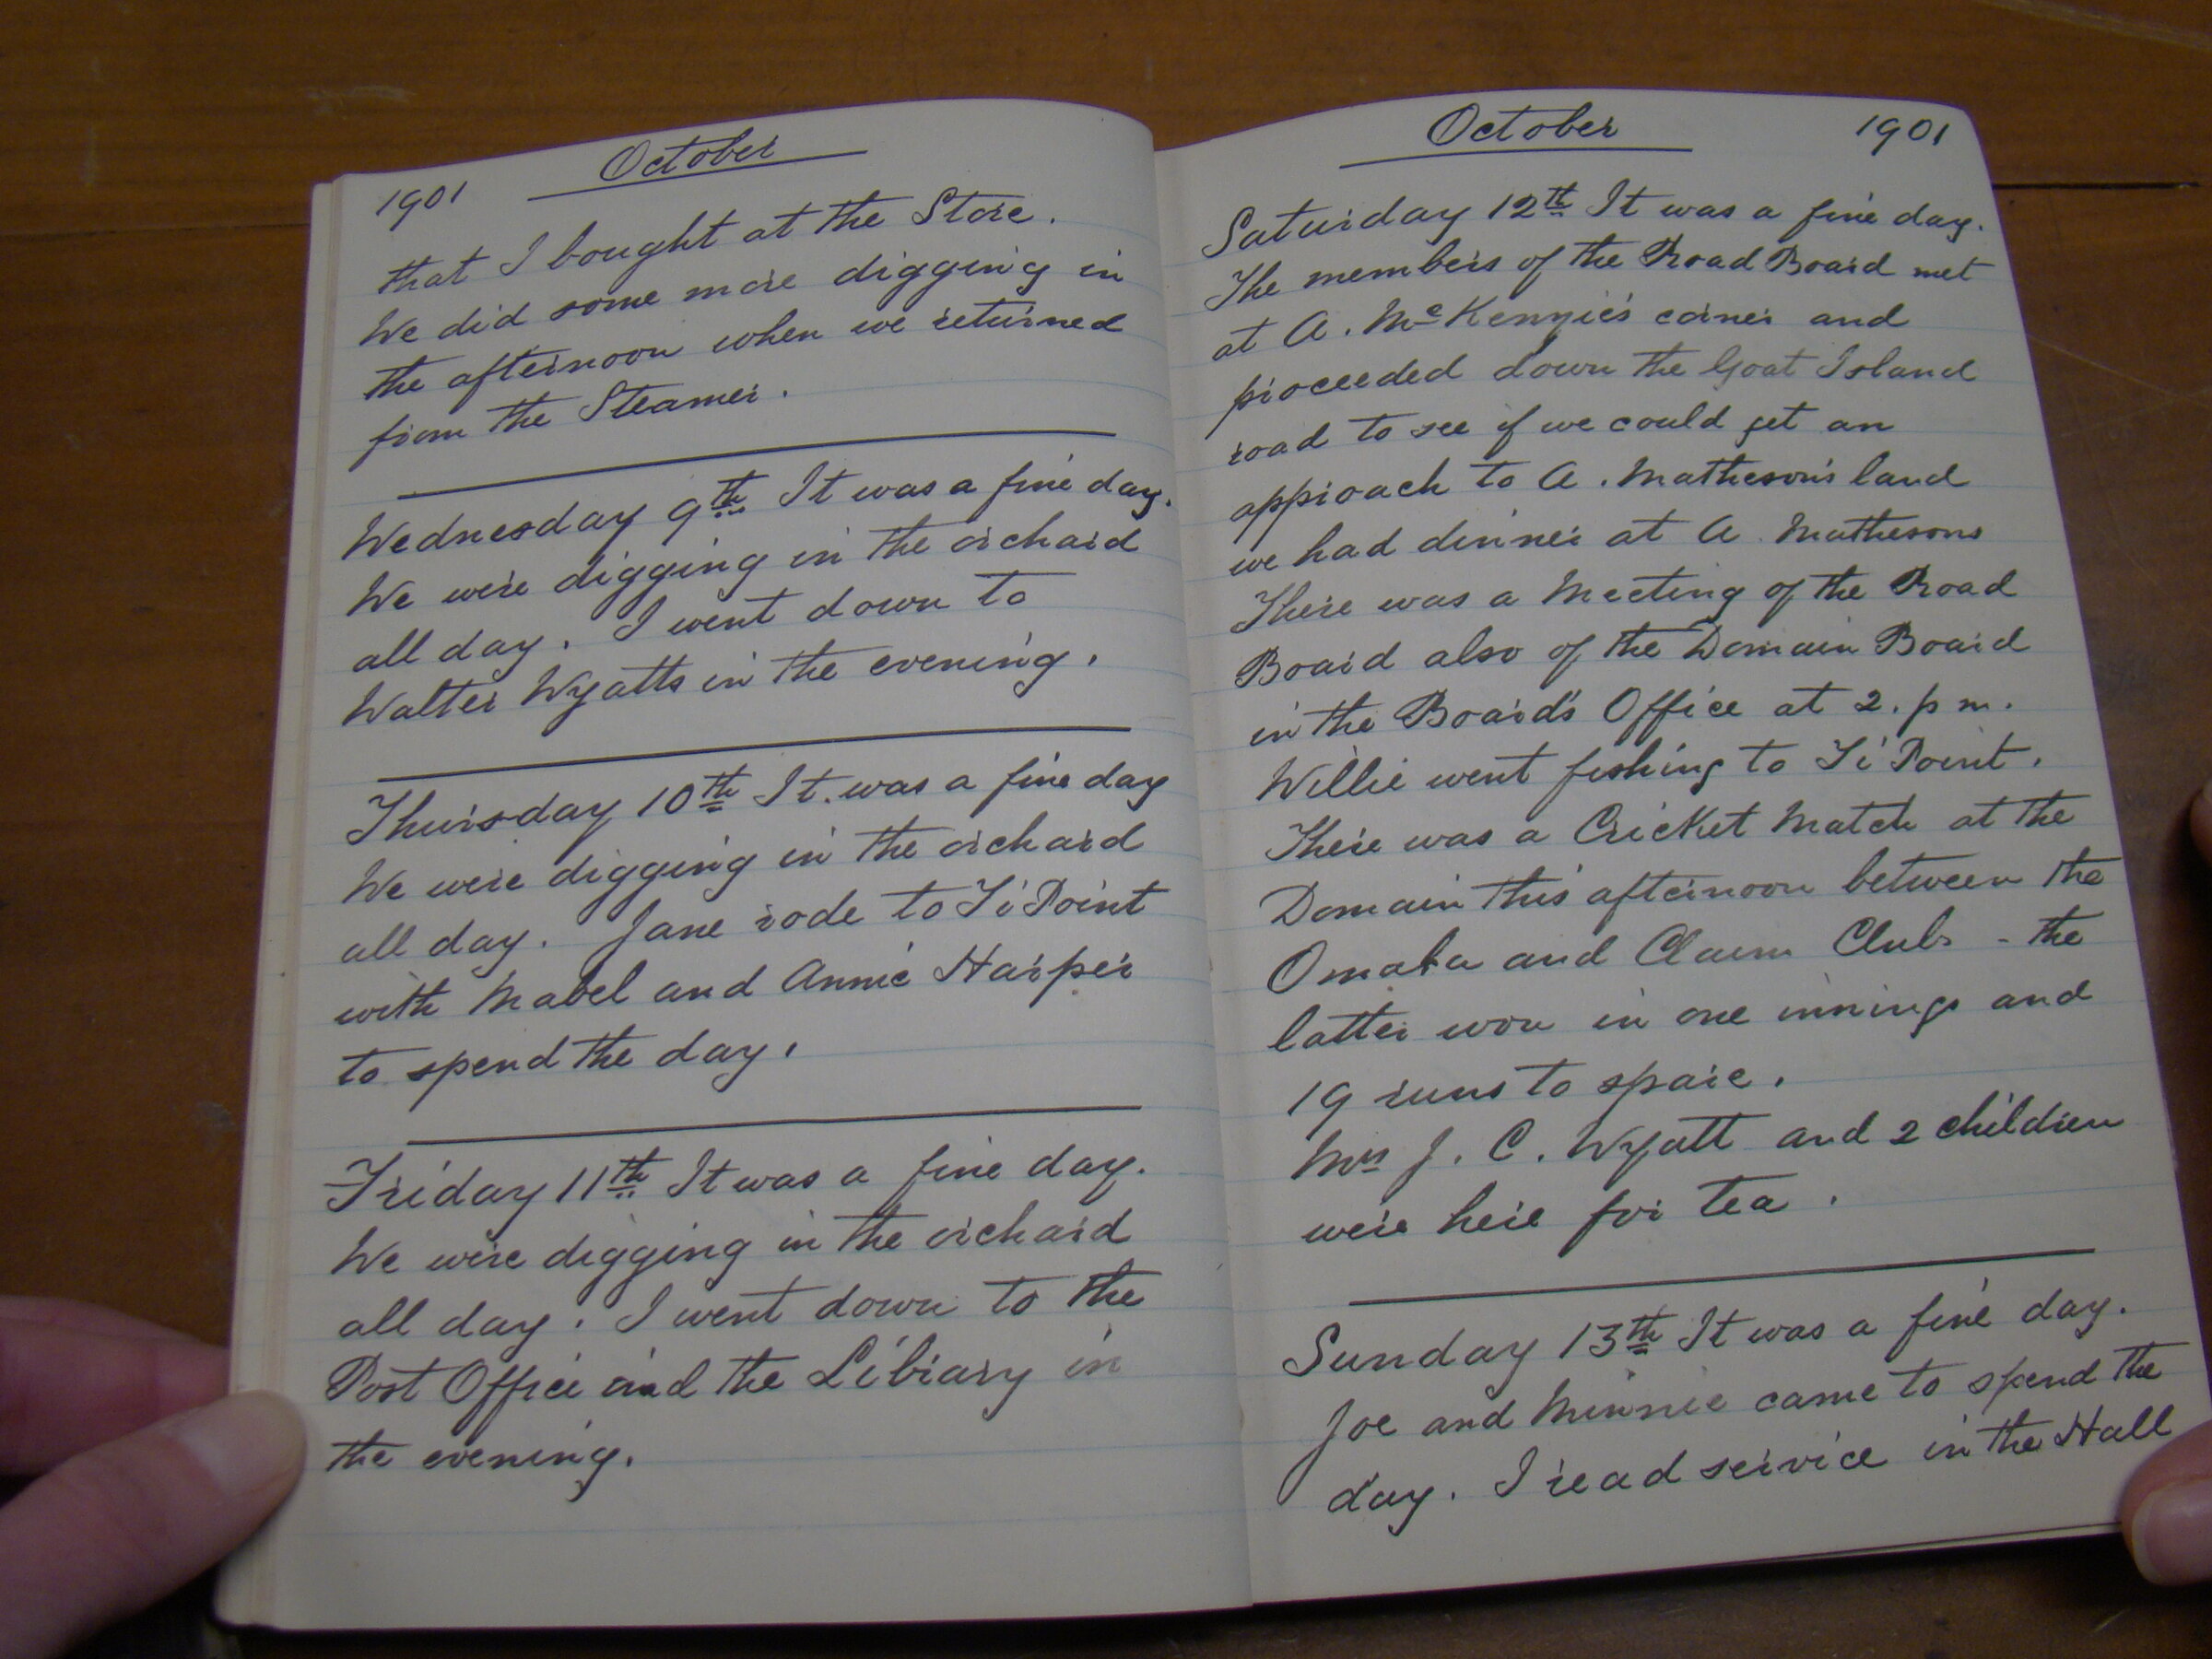 1901 October
that I bought at the Store.
We did some more digging in
the afternoon when we returned
from the Steamer.
Wednesday 9th It was a fine day.
We were digging in the orchard
all day. I went down to
Walter Wyatts in the evening.
Thursday 10th It was a fine day
We were digging in the orchard
all day. Jane rode to Ti Point
with Mabel and Annie Harper
to spend the day.
Friday 11th It was a fine day.
We were digging in the orchard
all day. I went down to the
Post Office and the Library in
the evening.
October 1901
Saturday 12th It was a fine day.
The members of the Road Board met
at A. McKenzie's corner and
proceeded down the Goat Island
road to see if we could get an
approach to A. Matheson's land
we had dinner at A Mathesons
There was a Meeting of the Road
Board also of the Domain Board
in the Board's Office at 2. p m.
Willie went fishing to Ti Point.
There was a Cricket Match at the
Domain this afternoon between the
Omaha and Claim Clubs - the
latter won in one innings and
19 runs to spare.
Mrs J. C. Wyatt and 2 children
were here for tea.
Sunday 13th It was a fine day.
Joe and Minnie came to spend the
day. I read service in the Hall